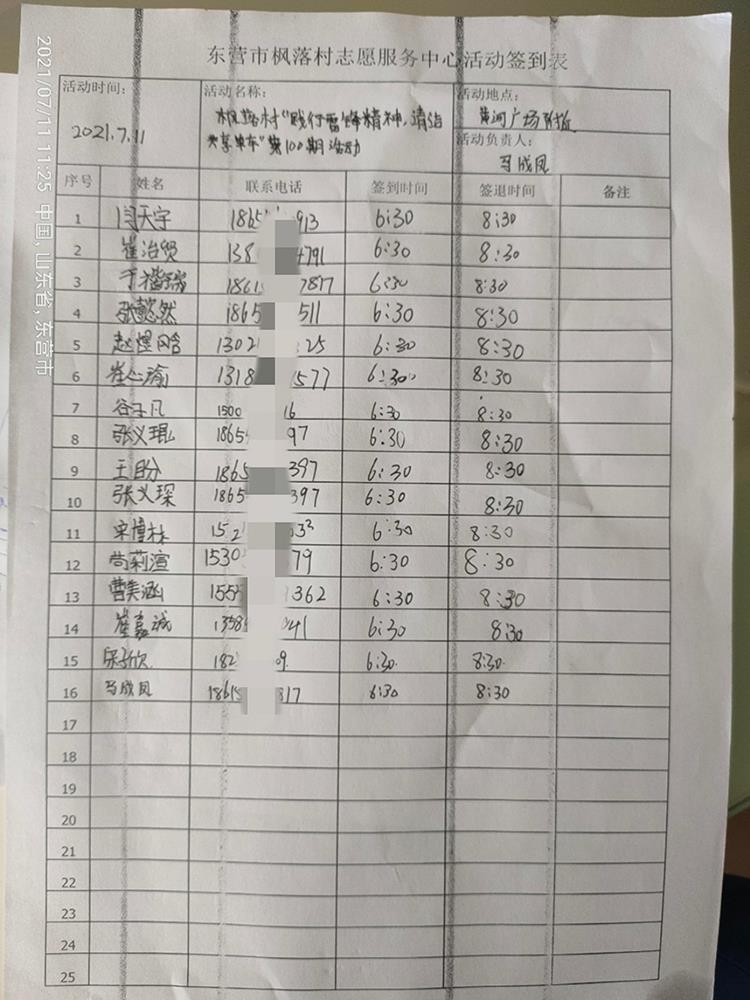 东营市枫落村志愿服务中心活动签到表
活动时间： 活动名称： 活动地点：
2021.7.11 枫落村“践行雷锋精神，清洁 黄河广场附近
共享单车”第100期活动 活动负责人：
马成凤
序号 姓名 联系电话 签到时间 签退时间 备注
1 闫天宇 1865 913 6:30 8:30
2 崔治贤 138 4791 6:30 8:30
3 于 1861 7877 6:30 8:30
4 张懿然 1865 511 6:30 8:30
5 赵煜晗 1302 25 6:30 8:30
6 崔心瑜 1318 577 6:30 8:30
7 谷子凡 1500 16 6:30 8:30
8 张义琨 1865 97 6:30 8:30
9 王盼 1865 397 6:30 8:30
10 张义琛 1865 397 6:30 8:30
11 宋博林 152 33 6:30 8:30
12 尚莉渲 1530 79 6:30 8:30
13 曹美涵 1555 362 6:30 8:30
14 崔嘉诚 1358 041 6:30 8:30
15 宋子欣 182 09 6:30 8:30
16 马成凤 18615 817 6:30 8:30
17
18
19
20
21
22
23
24
25
2021/07/11 11:25 中国，山东省，东营市